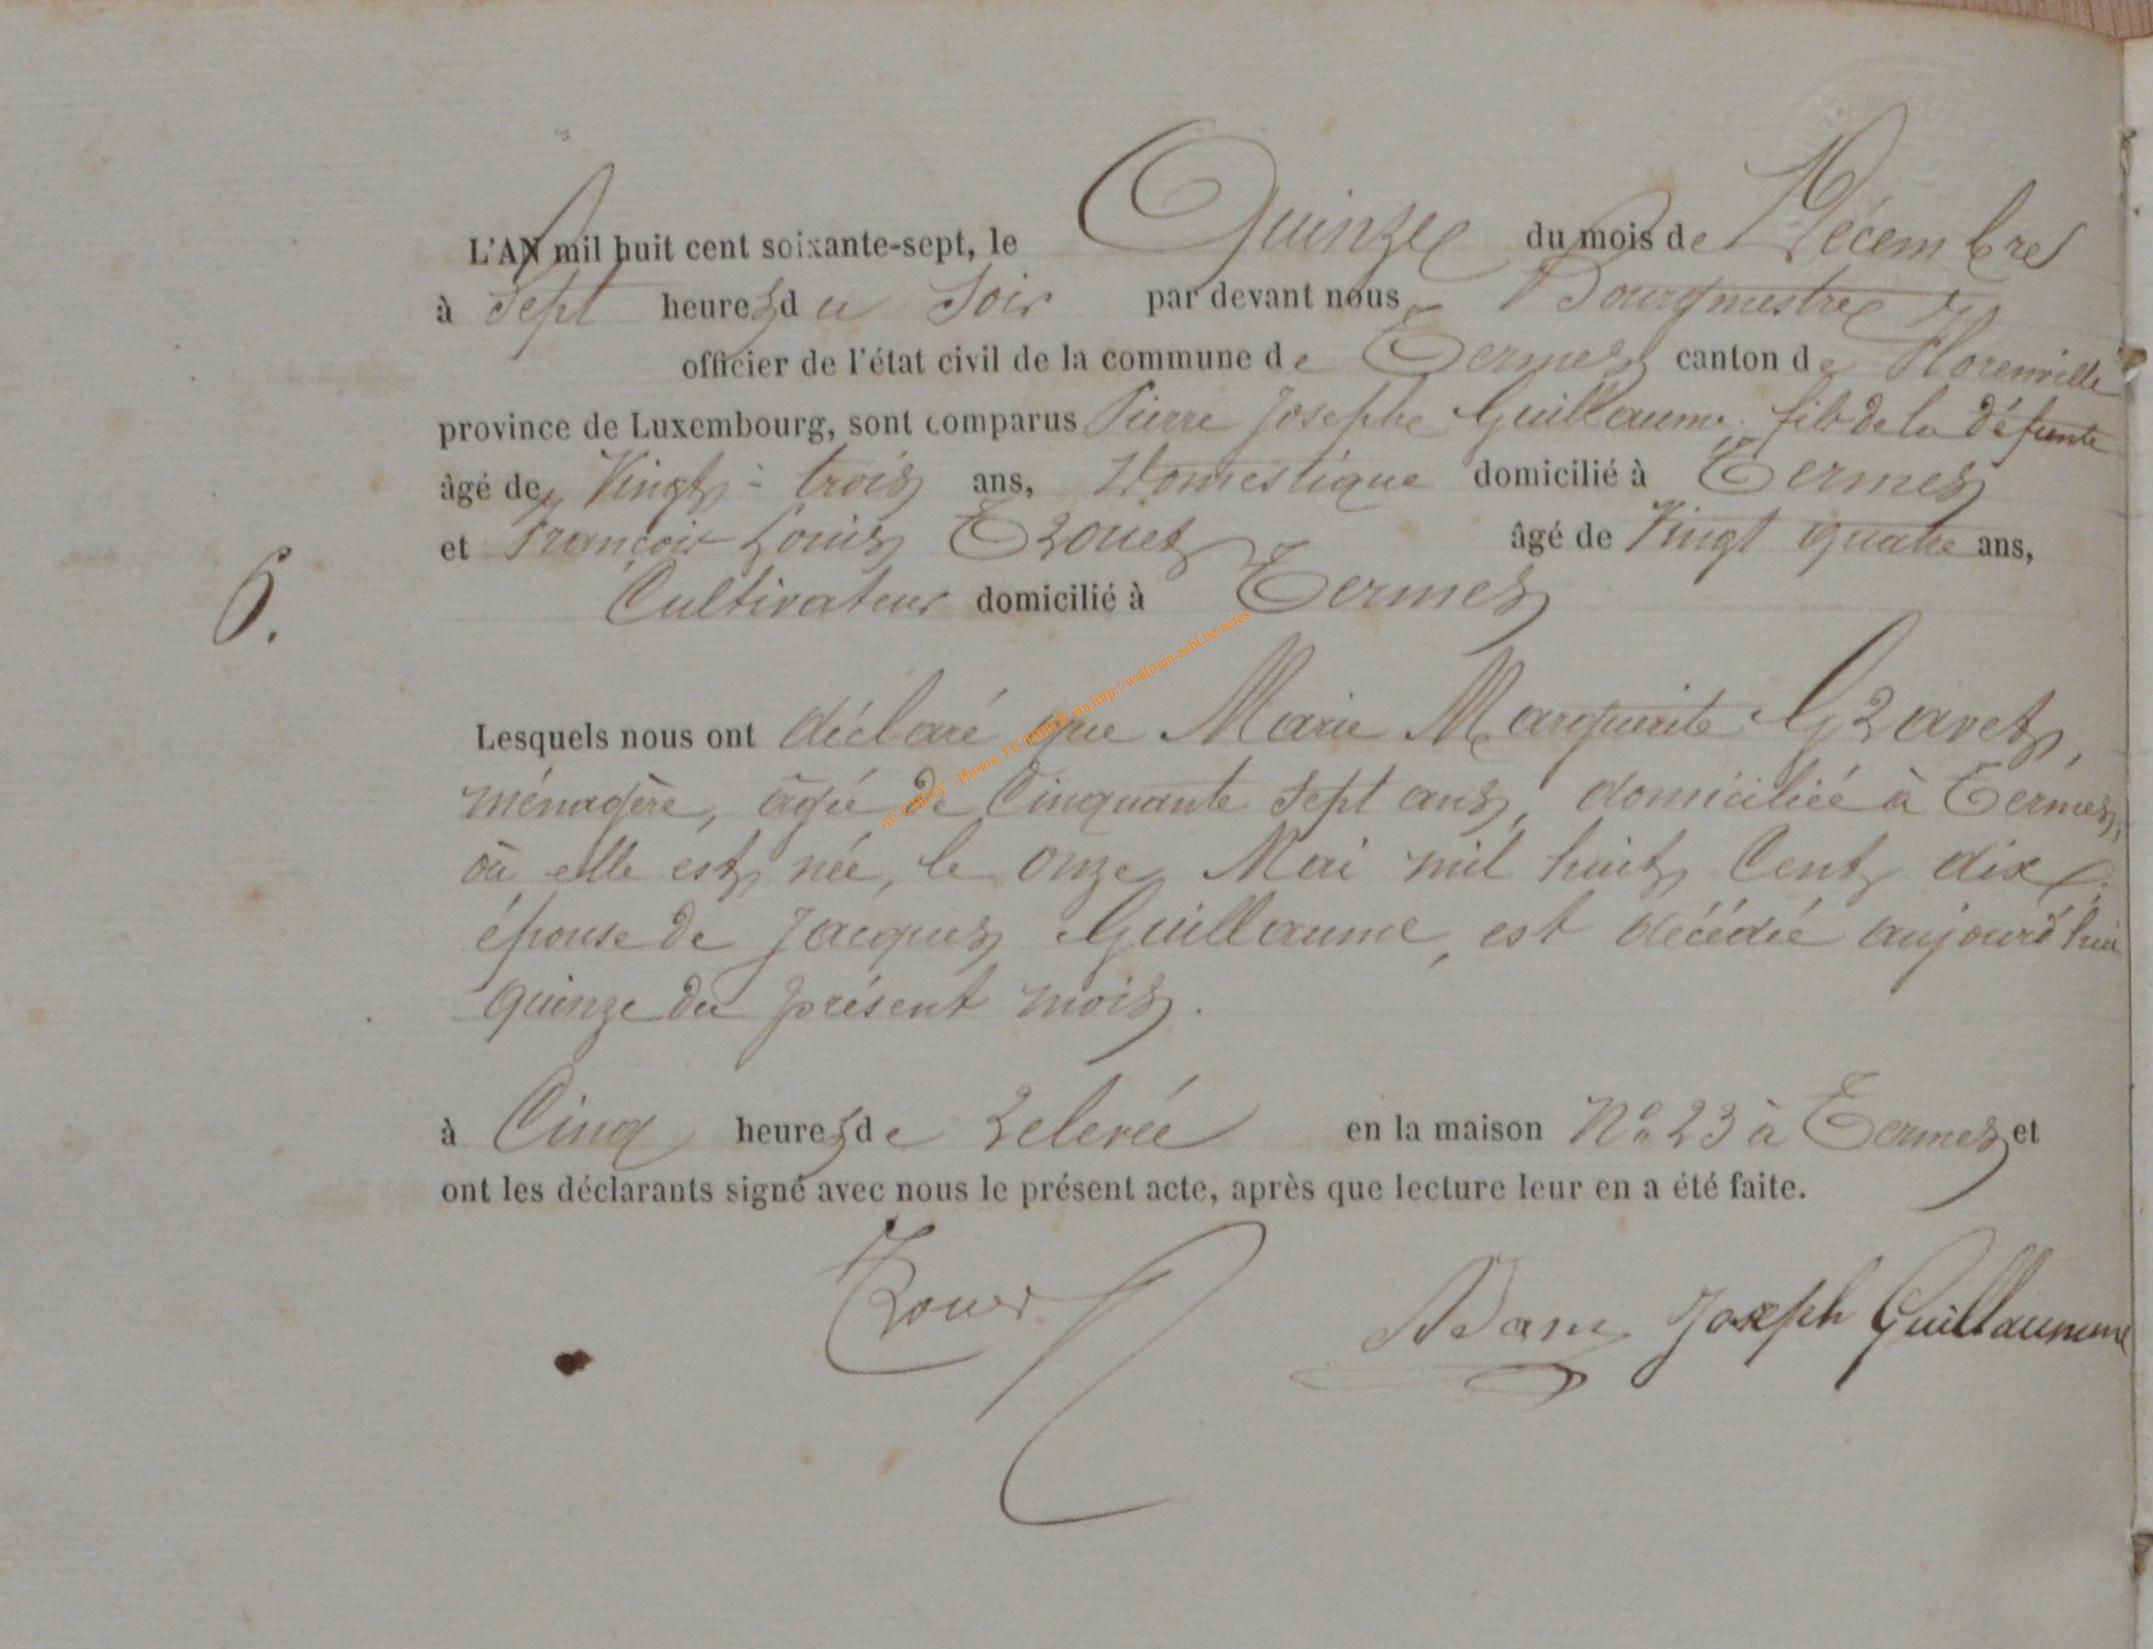 L'AN mil huit cent soixante-sept, le Quinze du mois de Décembre
à Sept heures du Soir par devant nous Bourgmestre
officier de l'état civil de la commune de Termes canton de Florenville
province de Luxembourg, sont comparus Pierre Josephe Guillaume fils de la défunte
âgé de Vingt-trois ans, Domestique domicilié à Termes
et François Louis âgé de Vingt quatre ans,
6. Cultivateur domicilié à Termes
Lesquels nous ont déclaré que Marie Marguerite Gravet,
ménagère, âgée de Cinquante Sept ans, domiciliée à Termes,
où elle est née, le onze Mai mil huit Cent dix,
épouse de Jacques Guillaume, est décédée aujourd'hui
quinze du présent mois.
à Cinq heures de relevée en la maison N° 23 à Termes et
ont les déclarants signé avec nous le présent acte, après que lecture leur en a été faite.
Adam Joseph Guillaumme
AC CHINY - Photos: J.C. via http://wallonia-asbl.be/actes